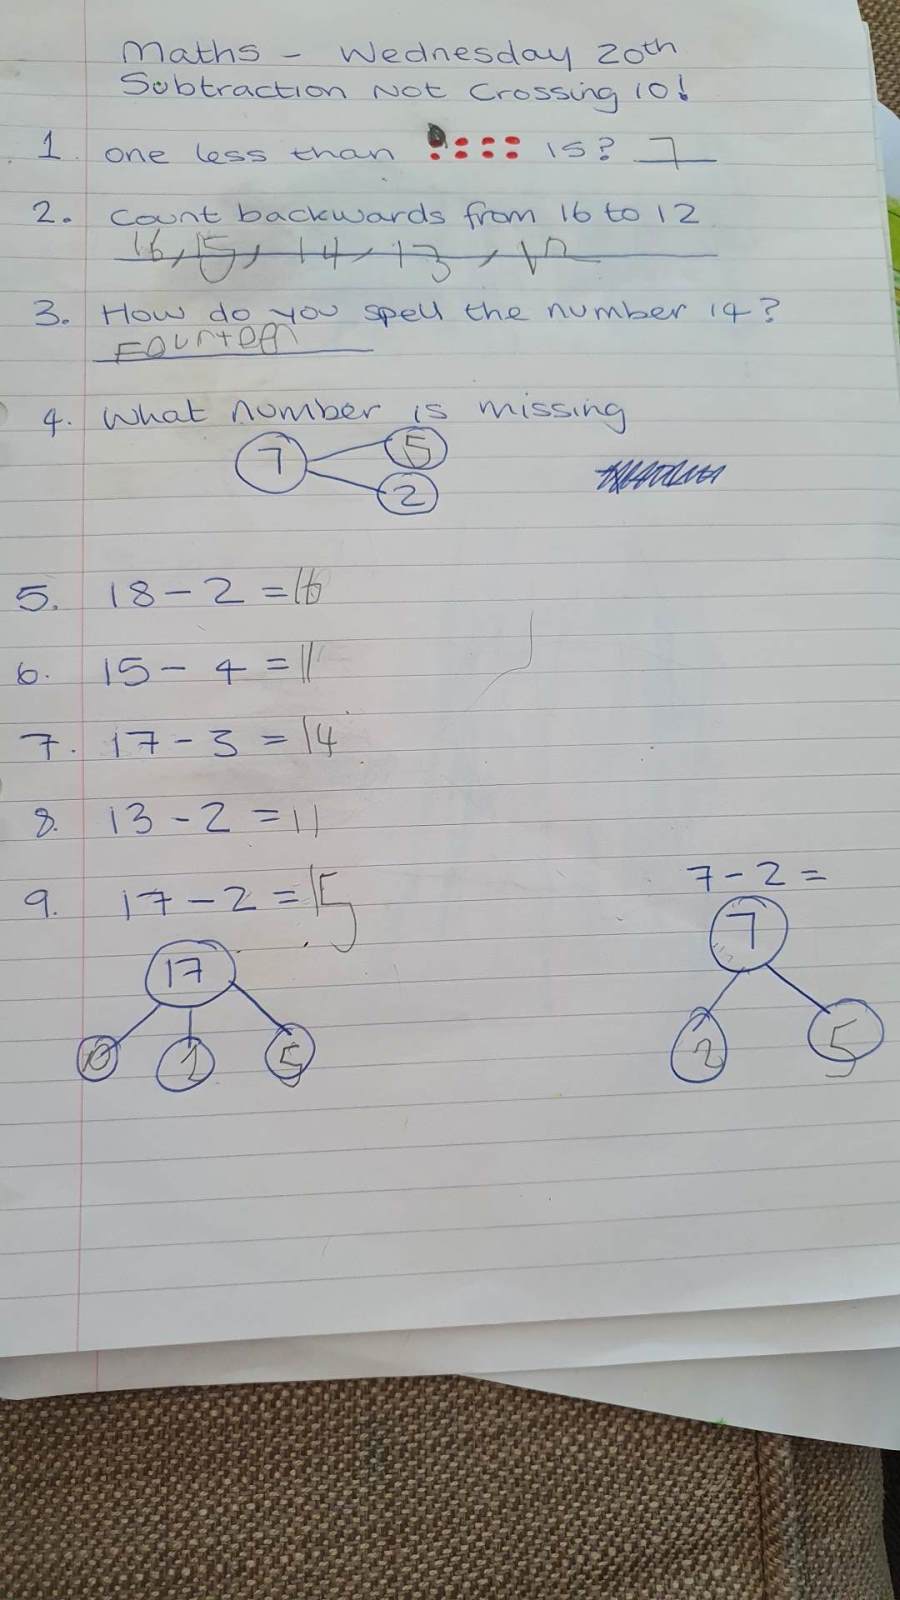 Maths - Wednesday 20th
Subtraction Not Crossing 10!
1. one less than is? 7
2. Count backwards from 16 to 12
16, 15, 14, 13, 12
3. How do you spell the number 14?
Fourteen
4. What number is missing
7 5
2
5. 18 - 2 = 16
6. 15 - 4 = 11
7. 17 - 3 = 14
8. 13 - 2 = 11
7 - 2 =
9. 17 - 2 = 15
7
17
2 5
1 5